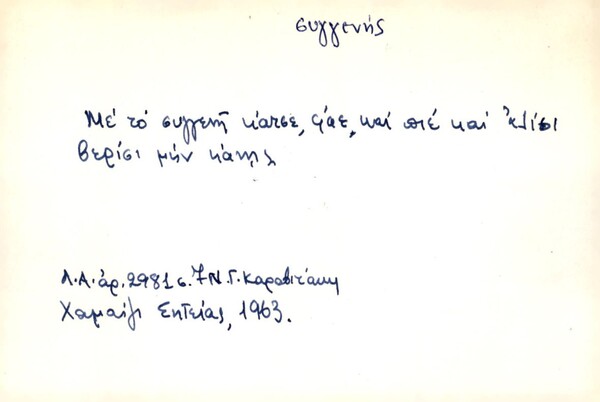 συγγενής
Μέ τό συγγενῆ κάτσε, φάε, καί πιέ καί ἀλίσι
βερίσι μήν κάνῃς
Λ.Α. ἀρ. 2981 σ. 7 Ν. Γ. Καραβιτάκη
Χαμαίζι Σητείας, 1963.